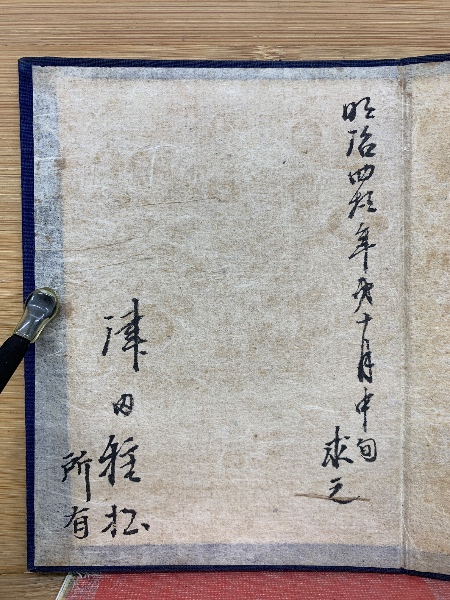 明治四拾年第十月中旬
求之
津田稚松
所有